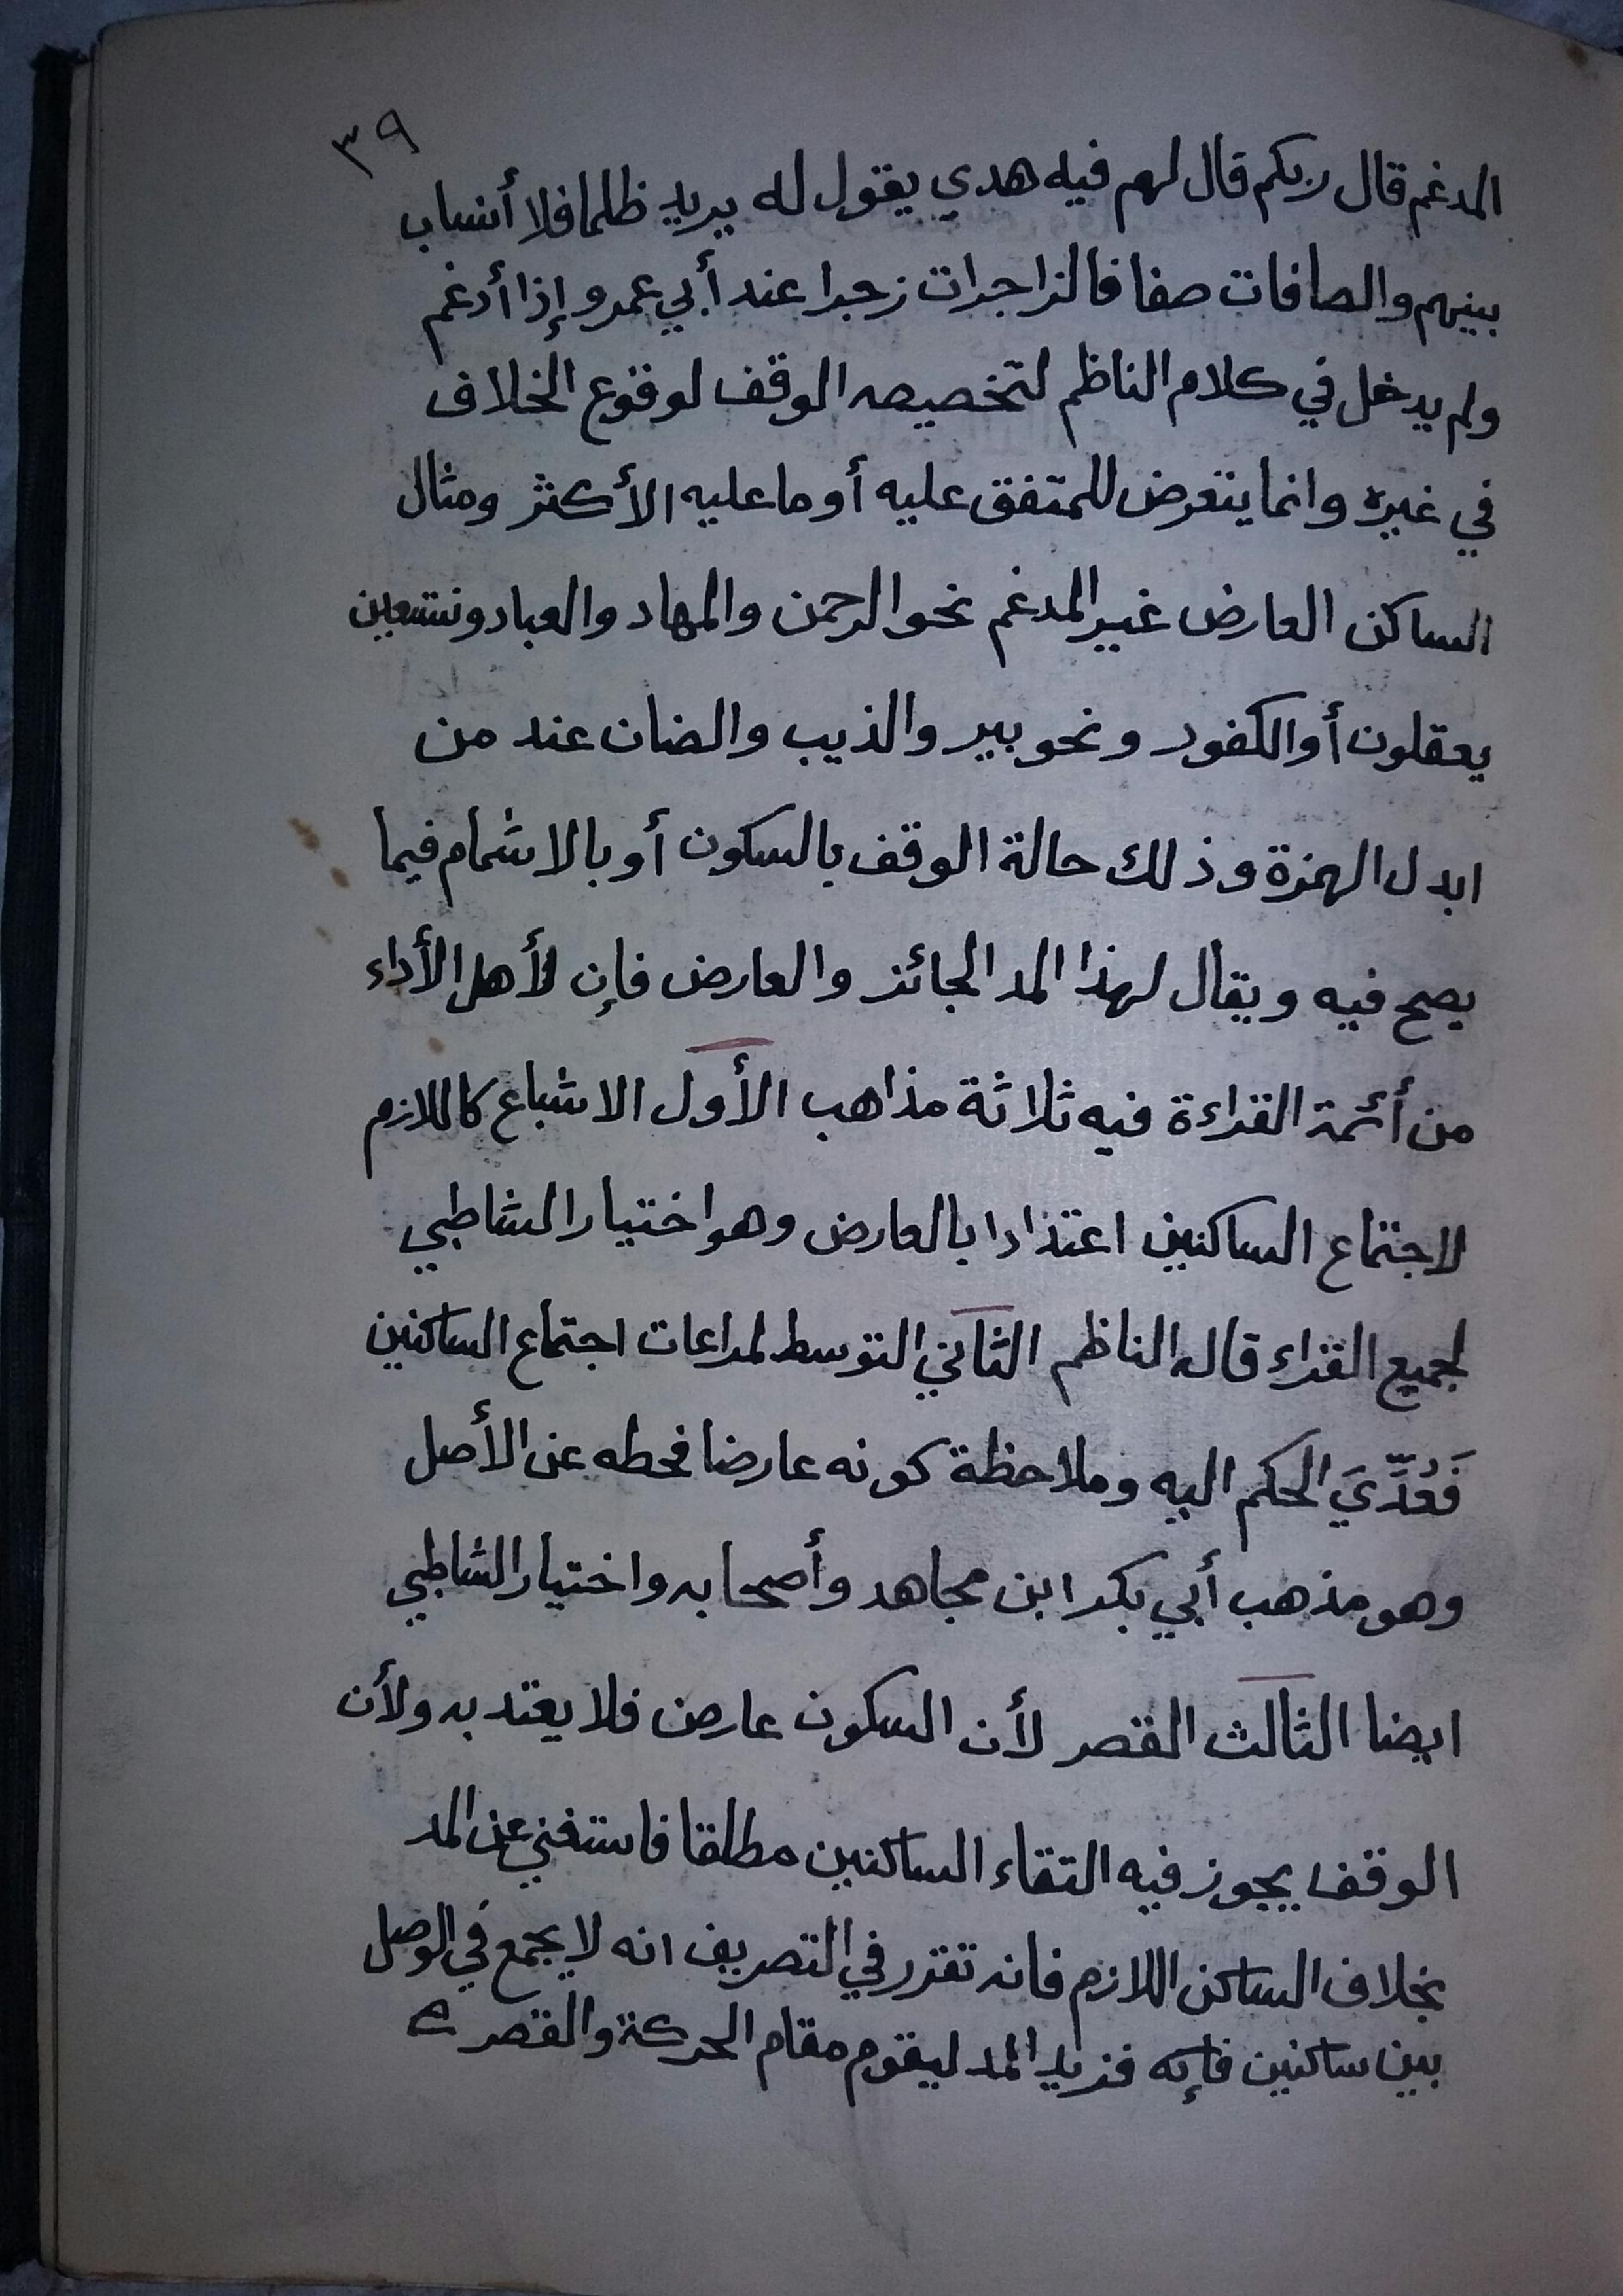 ٣٩
المدغم قال ربكم قال لهم فيه هدي يقول له يريد ظلما فلا أنساب
بينهم والصافات صفا فالزاجرات زجرا عند أبي عمرو إذا أدغم
ولم يدخل في كلام الناظم لتخصيصه الوقف لوقوع الخلاف
في غيره وانما يتعرض للمتفق عليه أو ما عليه الأكثر ومثال
الساكن العارض غير المدغم نحو الرحمن والمهاد والعباد ونستعين
يعقلون أو الكفور ونحو بير والذيب والضان عند من
ابدل الهمزة وذلك حالة الوقف بالسكون أو بالاشمام فيما
يصح فيه ويقال لهذا المد الجائز والعارض فإن لأهل الأداء
من أئمة القراءة فيه ثلاثة مذاهب الأول الاشباع كاللازم
لاجتماع الساكنين اعتدادا بالعارض وهو اختيار الشاطبي
لجميع القراء قاله الناظم الثاني التوسط لمراعات اجتماع الساكنين
فَعُدِّيَ الحكم اليه وملاحظة كونه عارضا فحطه عن الأصل
وهو مذهب أبي بكر ابن مجاهد وأصحابه واختيار الشاطبي
ايضا الثالث القصر لأن السكون عارض فلا يعتد به ولأن
الوقف يجوز فيه التقاء الساكنين مطلقا فاستغني عن المد
بخلاف الساكن اللازم فانه تقرر في التصريف انه لا يجمع في الوصل
بين ساكنين فإنه فزيد المد ليقوم مقام الحركة والقصر